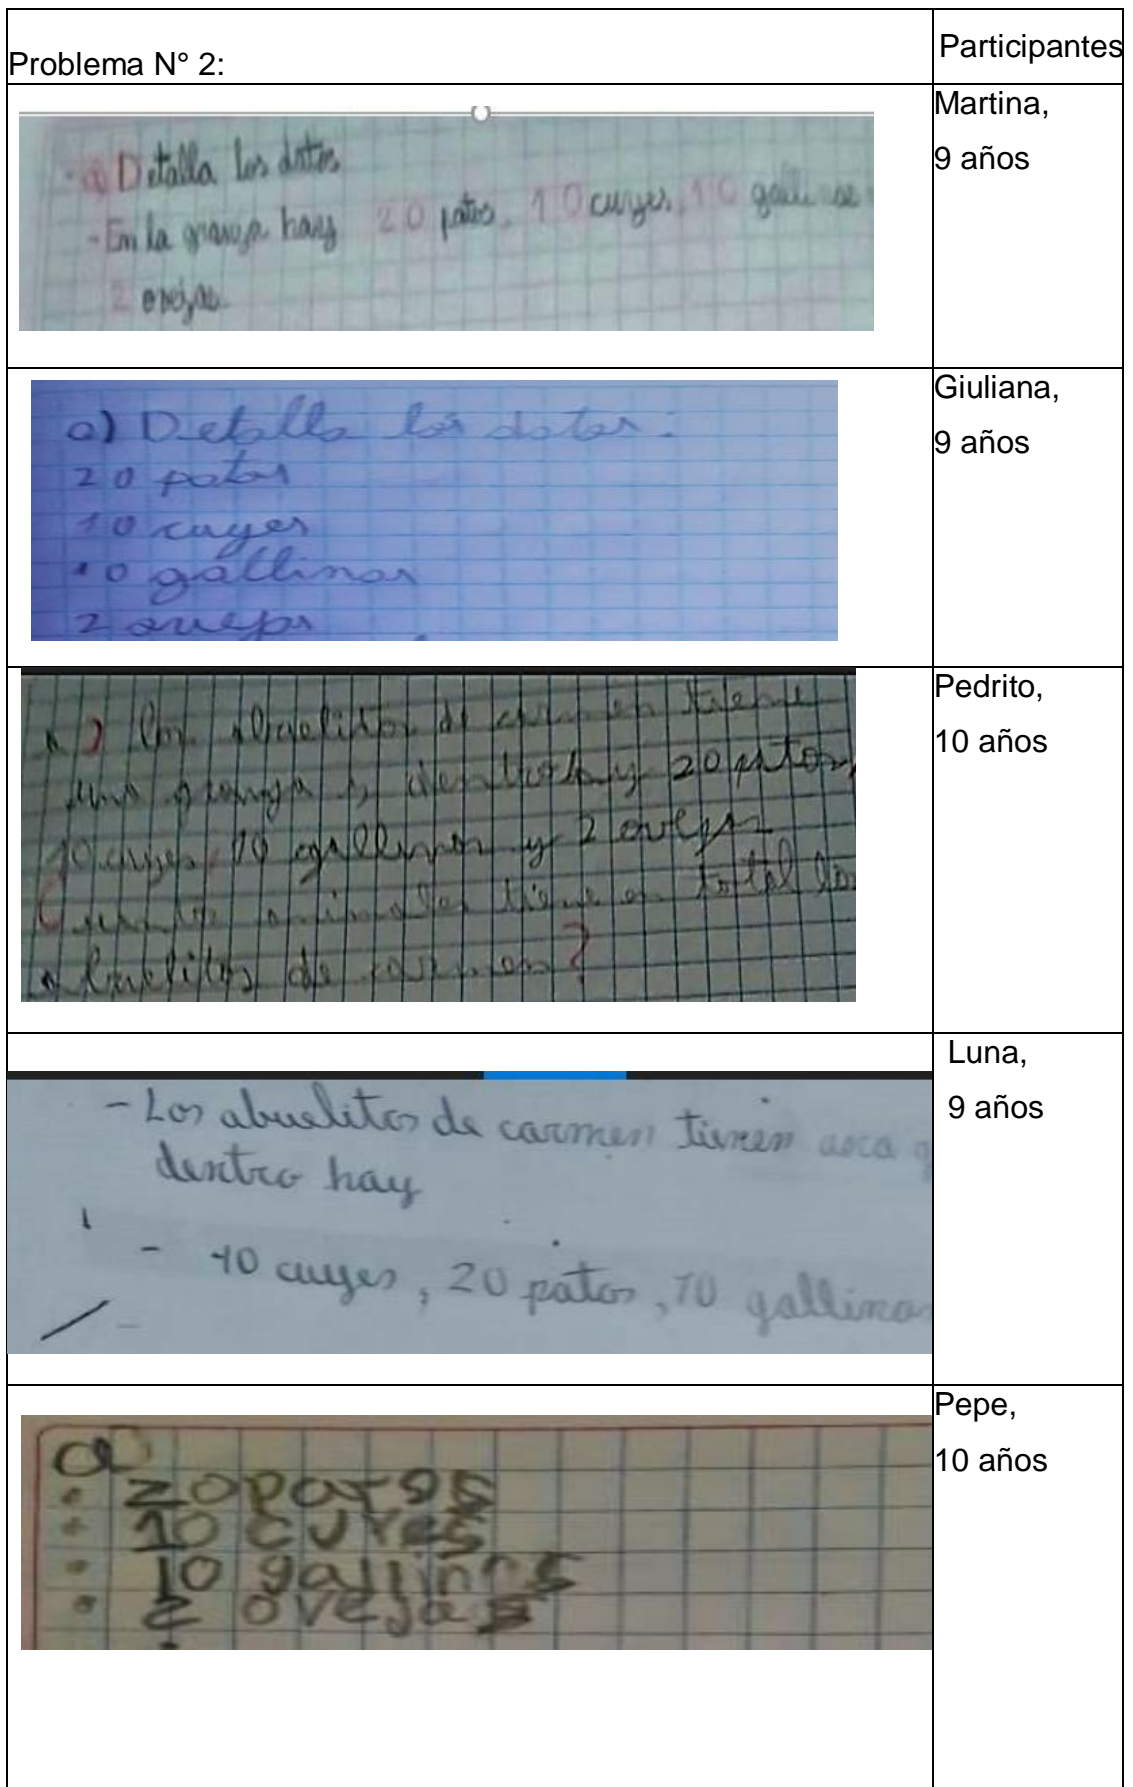 Problema N° 2:
Participantes
a) Detalla los datos
- En la granja hay 20 patos, 10 cuyes, 10 gallinas
2 ovejas
Martina,
9 años
a) Detalla los datos:
20 patos
10 cuyes
10 gallinas
2 ovejas
Giuliana,
9 años
a) Los abuelitos de carmen tiene
una granja y dentro hay 20 patos,
10 cuyes, 10 gallinas y 2 ovejas
Cuantos animales tiene en total los
abuelitos de carmen?
Pedrito,
10 años
- Los abuelitos de carmen tienen una g
dentro hay
- 10 cuyes, 20 patos, 10 gallinas
Luna,
9 años
a
• 20 patos
• 10 cuyes
• 10 gallinas
• 2 ovejas
Pepe,
10 años